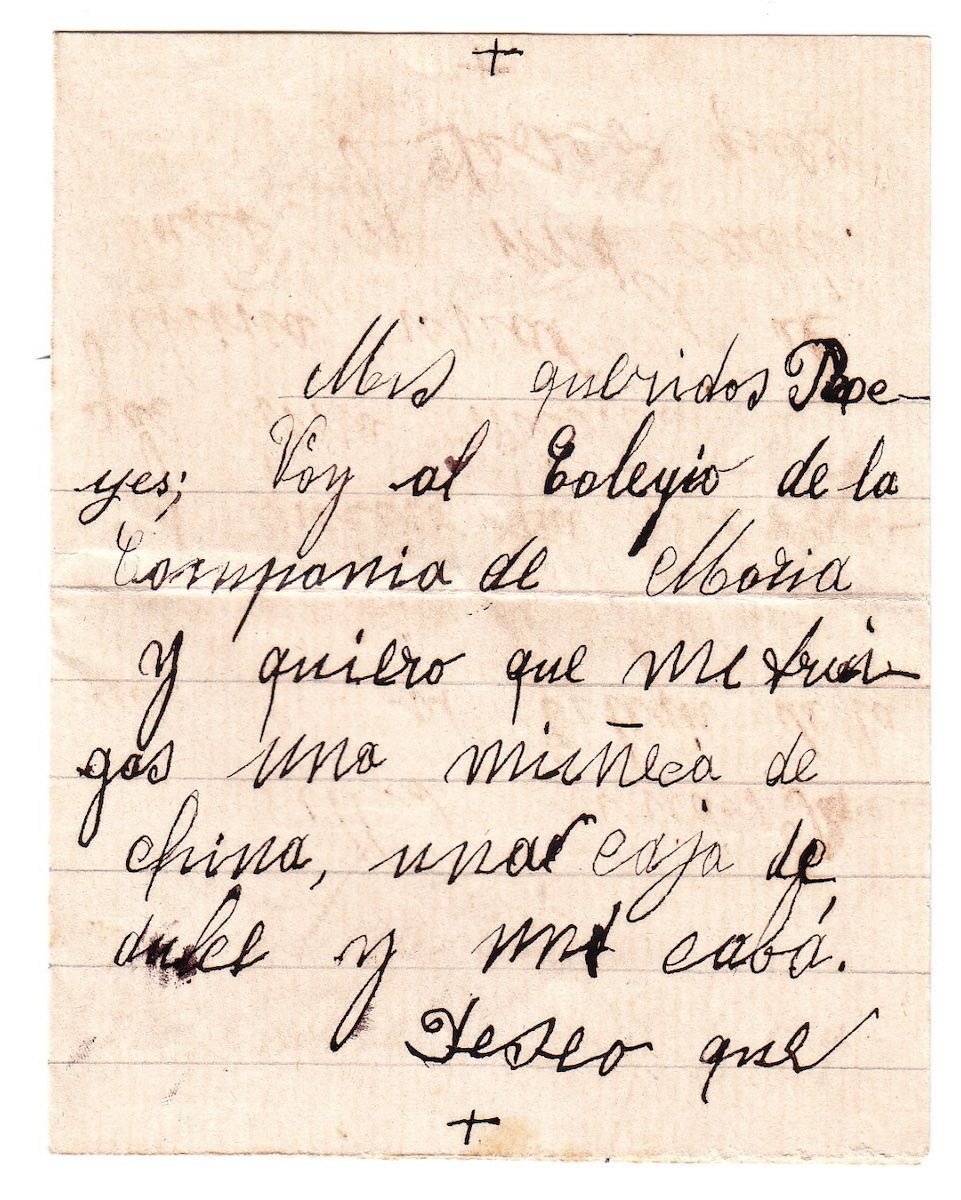 +
Mis queridos Re-
yes; Voy al Colegio de la
Compania de Maria
y quiero que me trai-
gas una muñeca de
china, una caja de
dulce y un cabá.
Deseo que
+